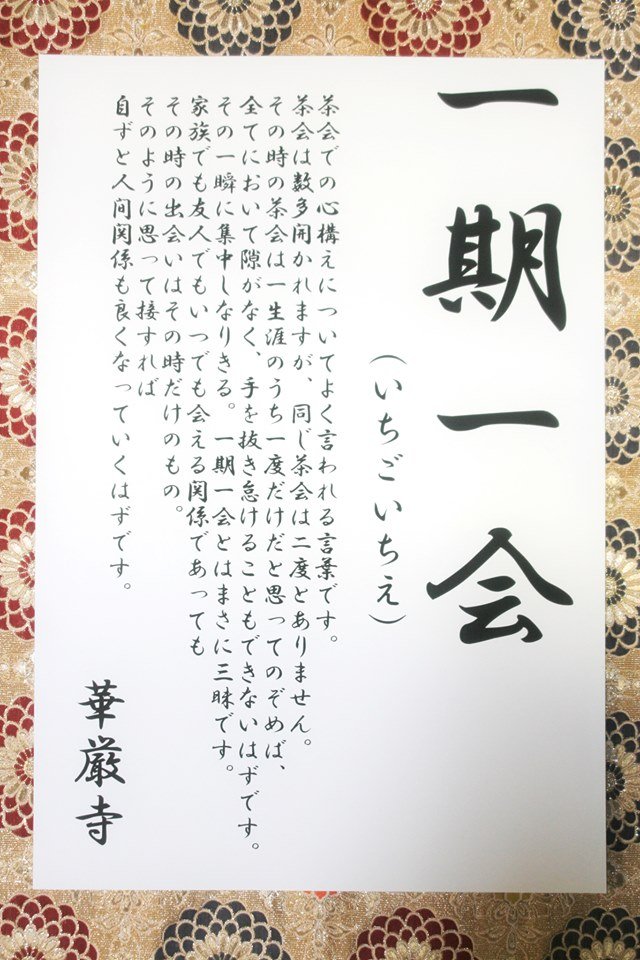 一期一会
（いちごいちえ）
茶会での心構えについてよく言われる言葉です。
茶会は数多開かれますが、同じ茶会は二度とありません。
その時の茶会は一生涯のうち一度だけだと思ってのぞめば、
全てにおいて隙がなく、手を抜き怠けることもできないはずです。
その一瞬に集中しなりきる。一期一会とはまさに三昧です。
家族でも友人でもいつでも会える関係であっても
その時の出会いはその時だけのもの。
そのように思って接すれば
自ずと人間関係も良くなっていくはずです。
華厳寺